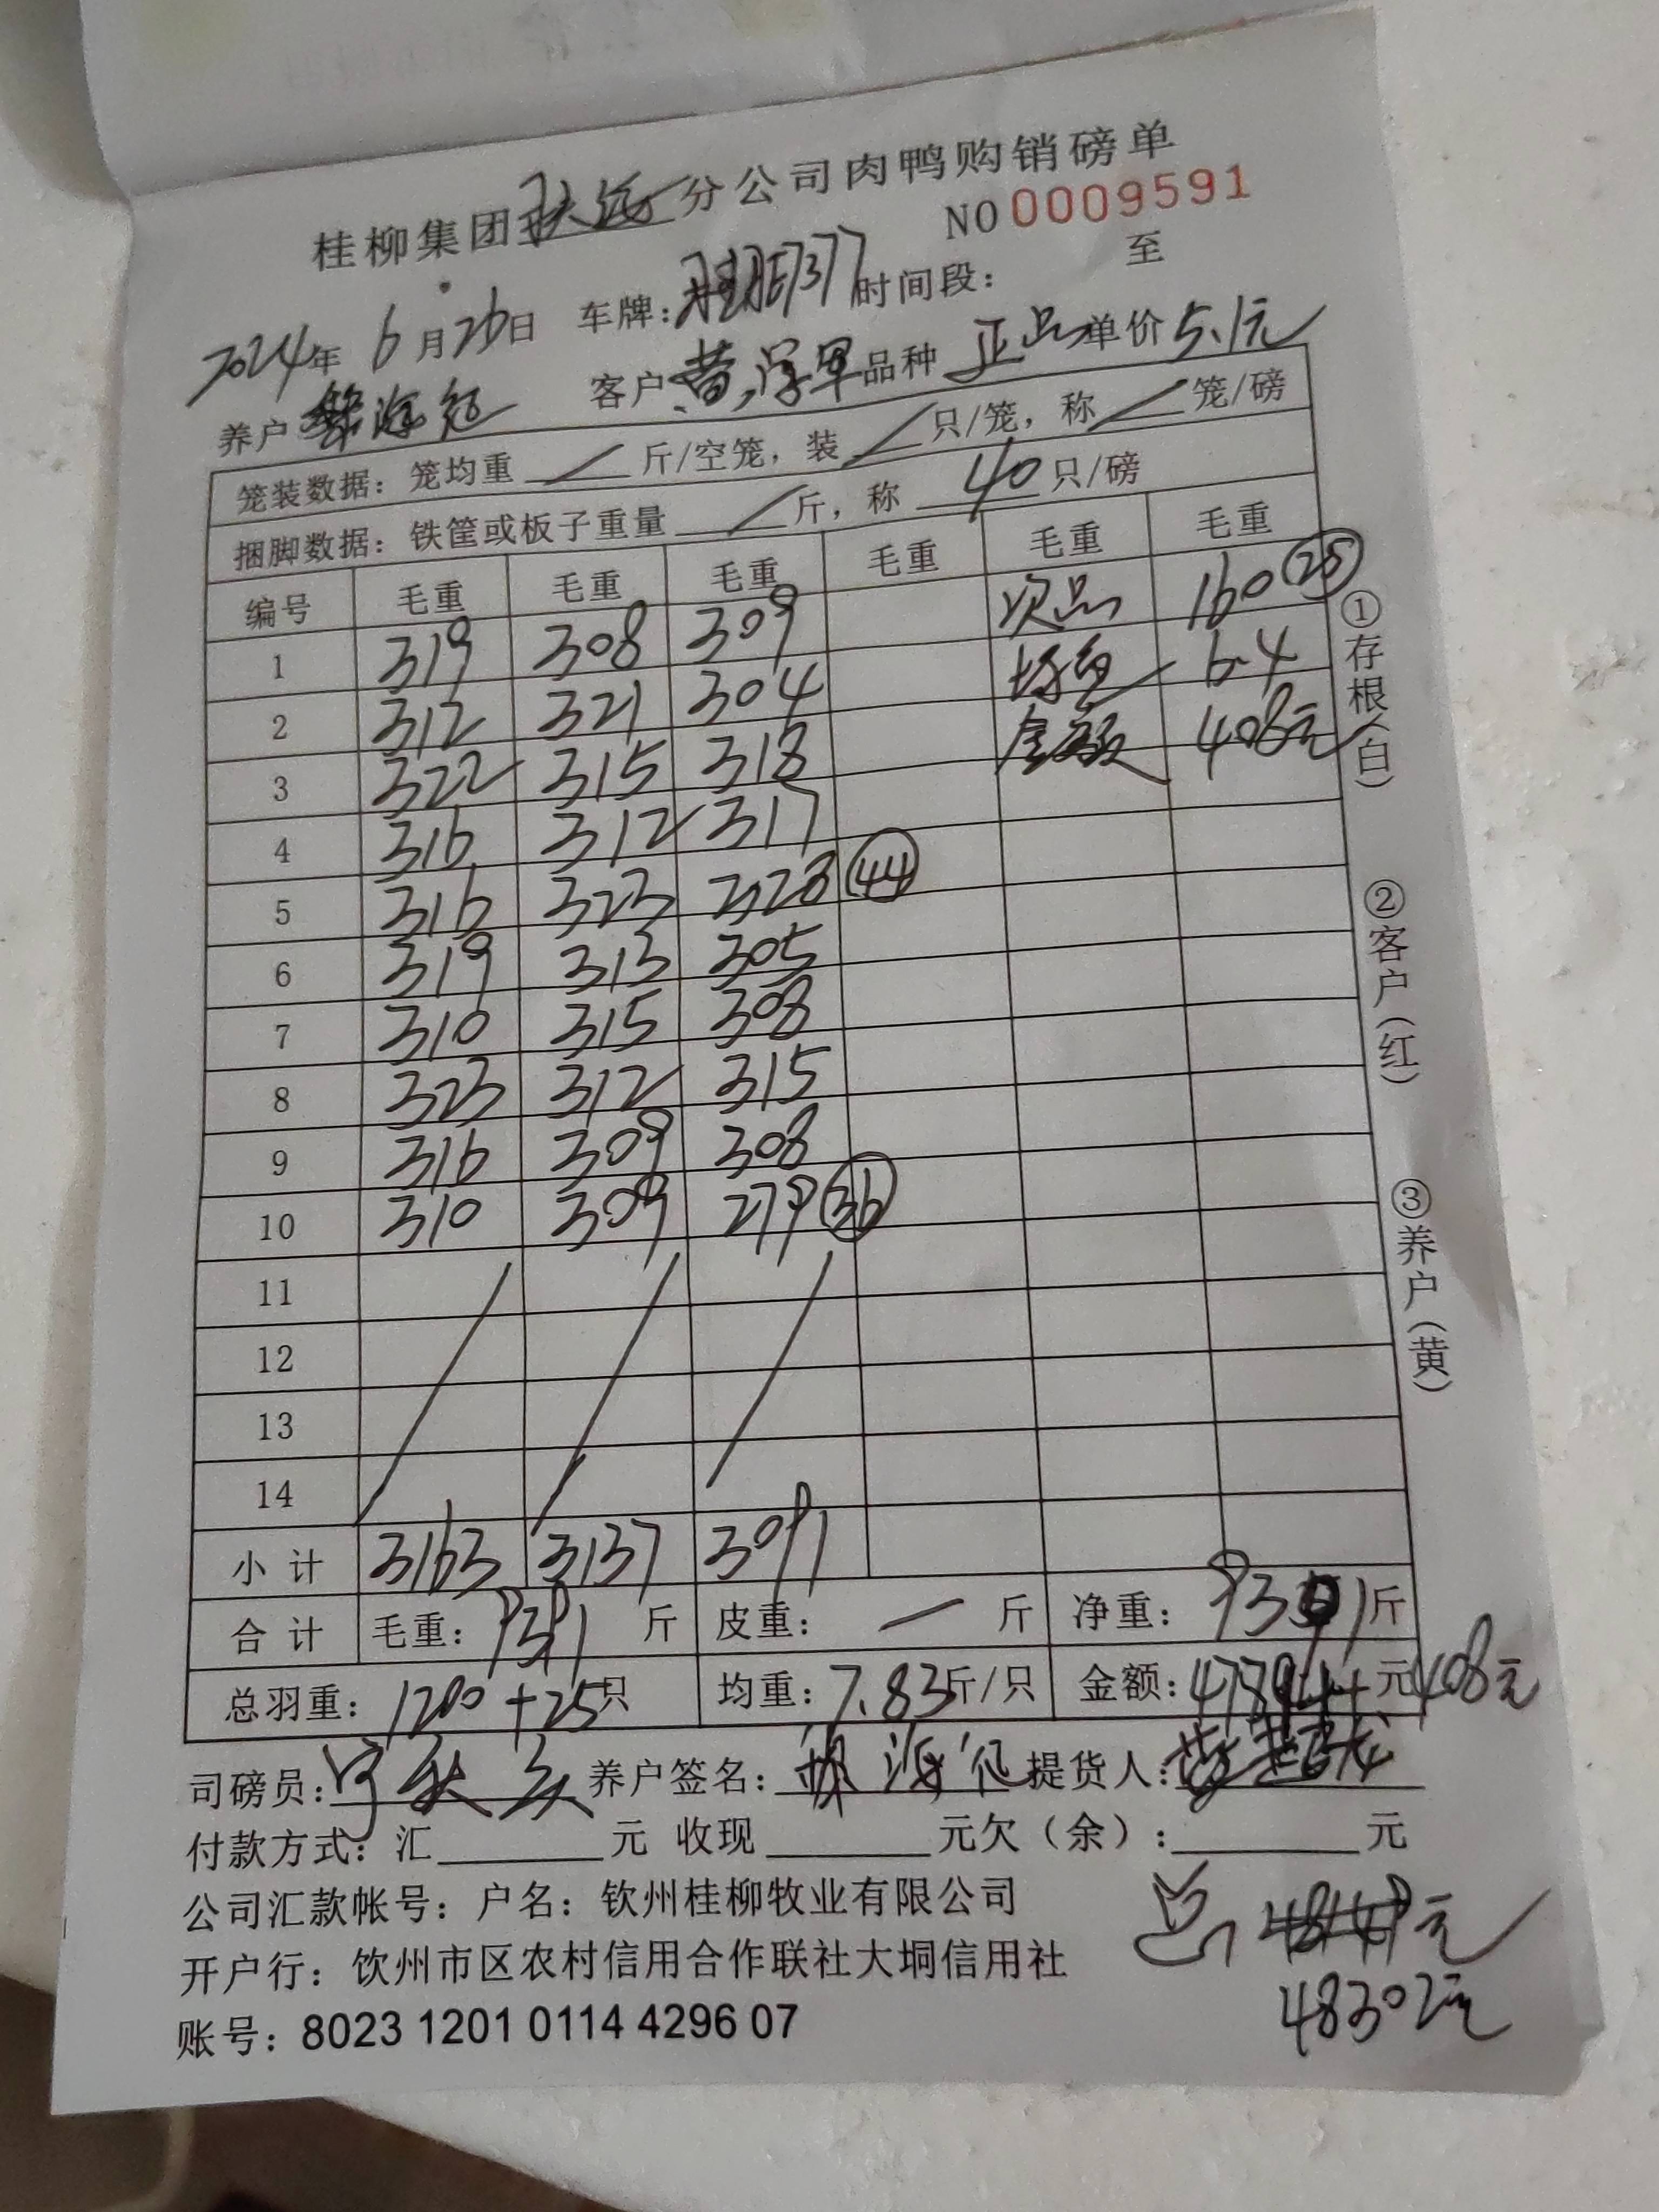 桂柳集团 分公司肉鸭购销磅单
NO 0009591
2024年 6月26日 车牌: 时间段: 至
养户 客户 品种 正品 单价 5.1元
笼装数据: 笼均重 / 斤/空笼, 装 / 只/笼, 称 / 笼/磅
捆脚数据: 铁筐或板子重量 / 斤, 称 40 只/磅
编号 毛重 毛重 毛重 毛重 毛重 毛重
1 319 308 309 次品 160 (25)
2 312 321 304 6.4
3 322 315 318 金额 408元
4 316 312 317
5 316 323 328 (44)
6 319 313 305
7 310 315 308
8 323 312 315
9 316 309 308
10 310 309 279 (36)
11
12
13
14
小计 3163 3137 3091
合计 毛重: 9391 斤 皮重: 一 斤 净重: 9391 斤
总羽重: 1200+25只 均重: 7.83斤/只 金额: 元 408元
司磅员: 养户签名: 提货人:
付款方式: 汇 元 收现 元欠(余): 元
公司汇款帐号: 户名: 钦州桂柳牧业有限公司
总 元
开户行: 钦州市区农村信用合作联社大垌信用社
48302元
账号: 8023 1201 0114 4296 07
①存根(白)
②客户(红)
③养户(黄)